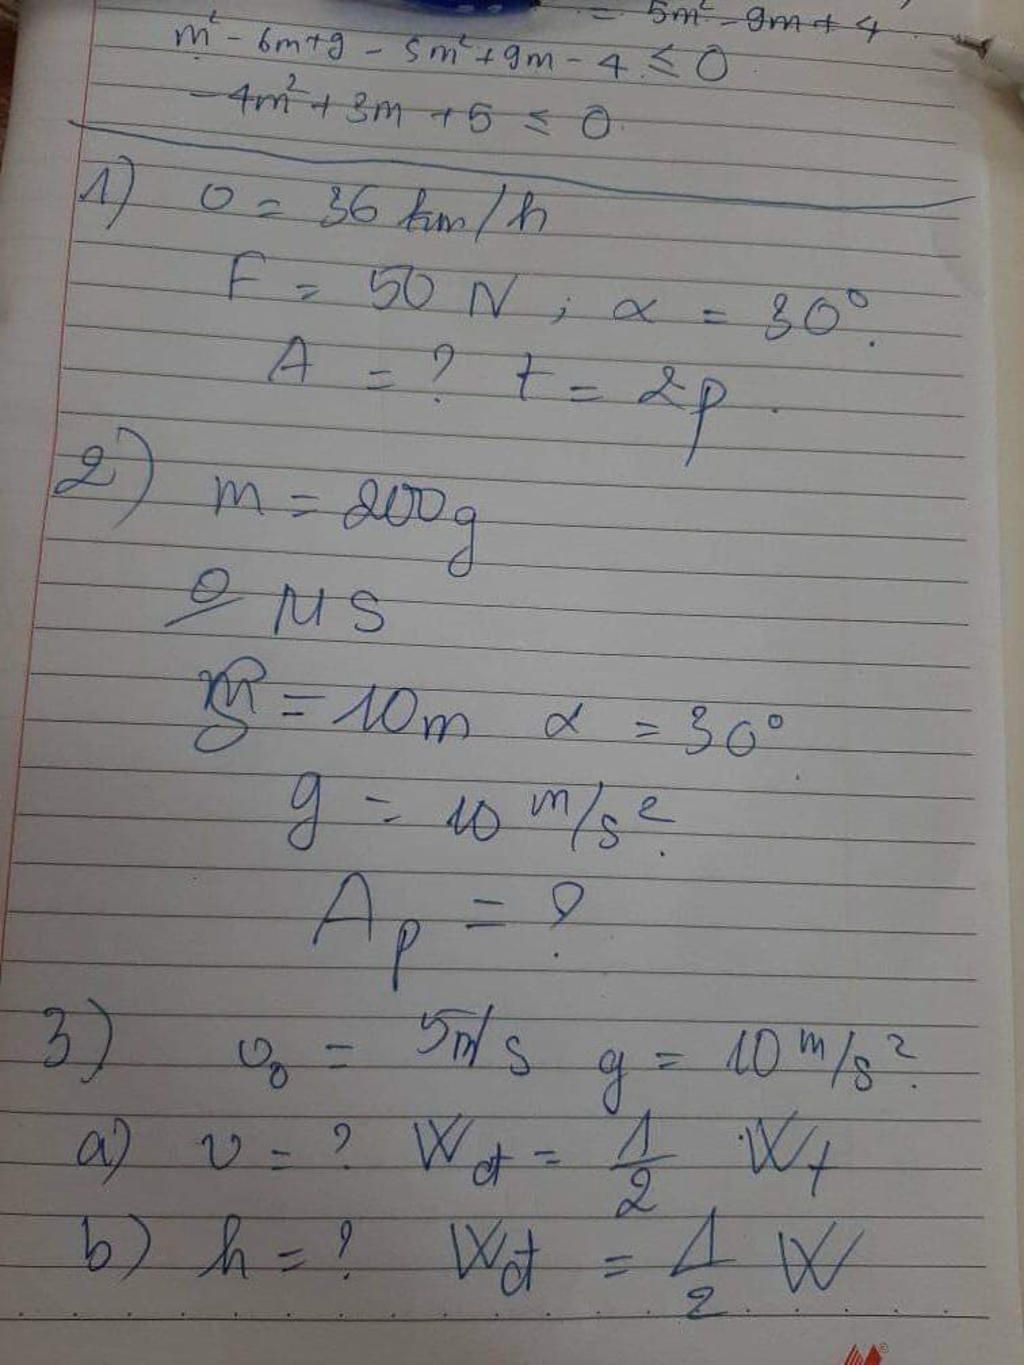 = 5m² - 9m + 4
m² - 6m + 9 - 5m² + 9m - 4 ≤ 0
- 4m² + 3m + 5 ≤ 0
1) v = 36 km/h
F = 50 N ; α = 30°.
A = ? t = 2p.
2) m = 200g
MS
S = 10m α = 30°
g = 10 m/s².
A_p = ?
3) v₀ = 5m/s g = 10 m/s².
a) v = ? Wđ = 1/2 Wt
b) h = ? Wđ = 1/2 W